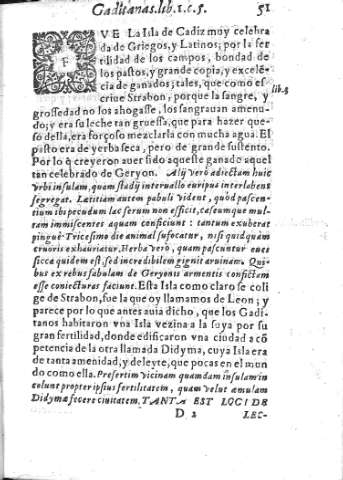 Gaditanas. lib. 1. c. 5. 51
FVE La Isla de Cadiz muy celebra
da de Griegos, y Latinos; por la fer
tilidad de los campos, bondad de
los pastos, y grande copia, y excelẽ
cia de ganados; tales, que como es
criue Strabon, porque la sangre, y
lib. 3
grossedad no los ahogasse, los sangrauan amenu-
do; y era su leche tan gruessa, que para hazer que-
so della, era forçoso mezclarla con mucha agua. El
pasto era de yerba seca, pero de grande sustento.
Por lo q̃ creyeron auer sido aqueste ganado aquel
tan celebrado de Geryon. Alij verò adiectam huic
vrbi insulam, quam stadij interuallo euripus interlabens
segregat. Lætitiam autem pabuli vident, quòd pascen-
tium ibi pecudum lac serum non efficit, caseumque mul-
tam immiscentes aquam conficiunt: tantum exuberat
pingue. Tricesimo die animal suffocatur, nisi quidquàm
cruoris exhauriatur, Herba verò, quam pascuntur oues
sicca quidem est, sed incredibilem gignit aruinam. Qui-
bus ex rebus fabulam de Geryonis armentis confictam
esse coniecturas faciunt. Esta Isla como claro se coli
ge de Strabon, fue la que oy llamamos de Leon; y
parece por lo que antes auia dicho, que los Gadi-
tanos habitaron vna Isla vezina a la suya por su
gran fertilidad, donde edificaron vna ciudad a cõ
petencia de la otra llamada Didyma, cuya Isla era
de tanta amenidad, y deleyte, que pocas en el mun
do como ella. Præsertim vicinam quamdam insulam in
colunt propter ipsius fertilitatem, quam velut æmulam
Didymæ fecere ciuitatem. TANTA EST LOCI DE
D 2 LEC-